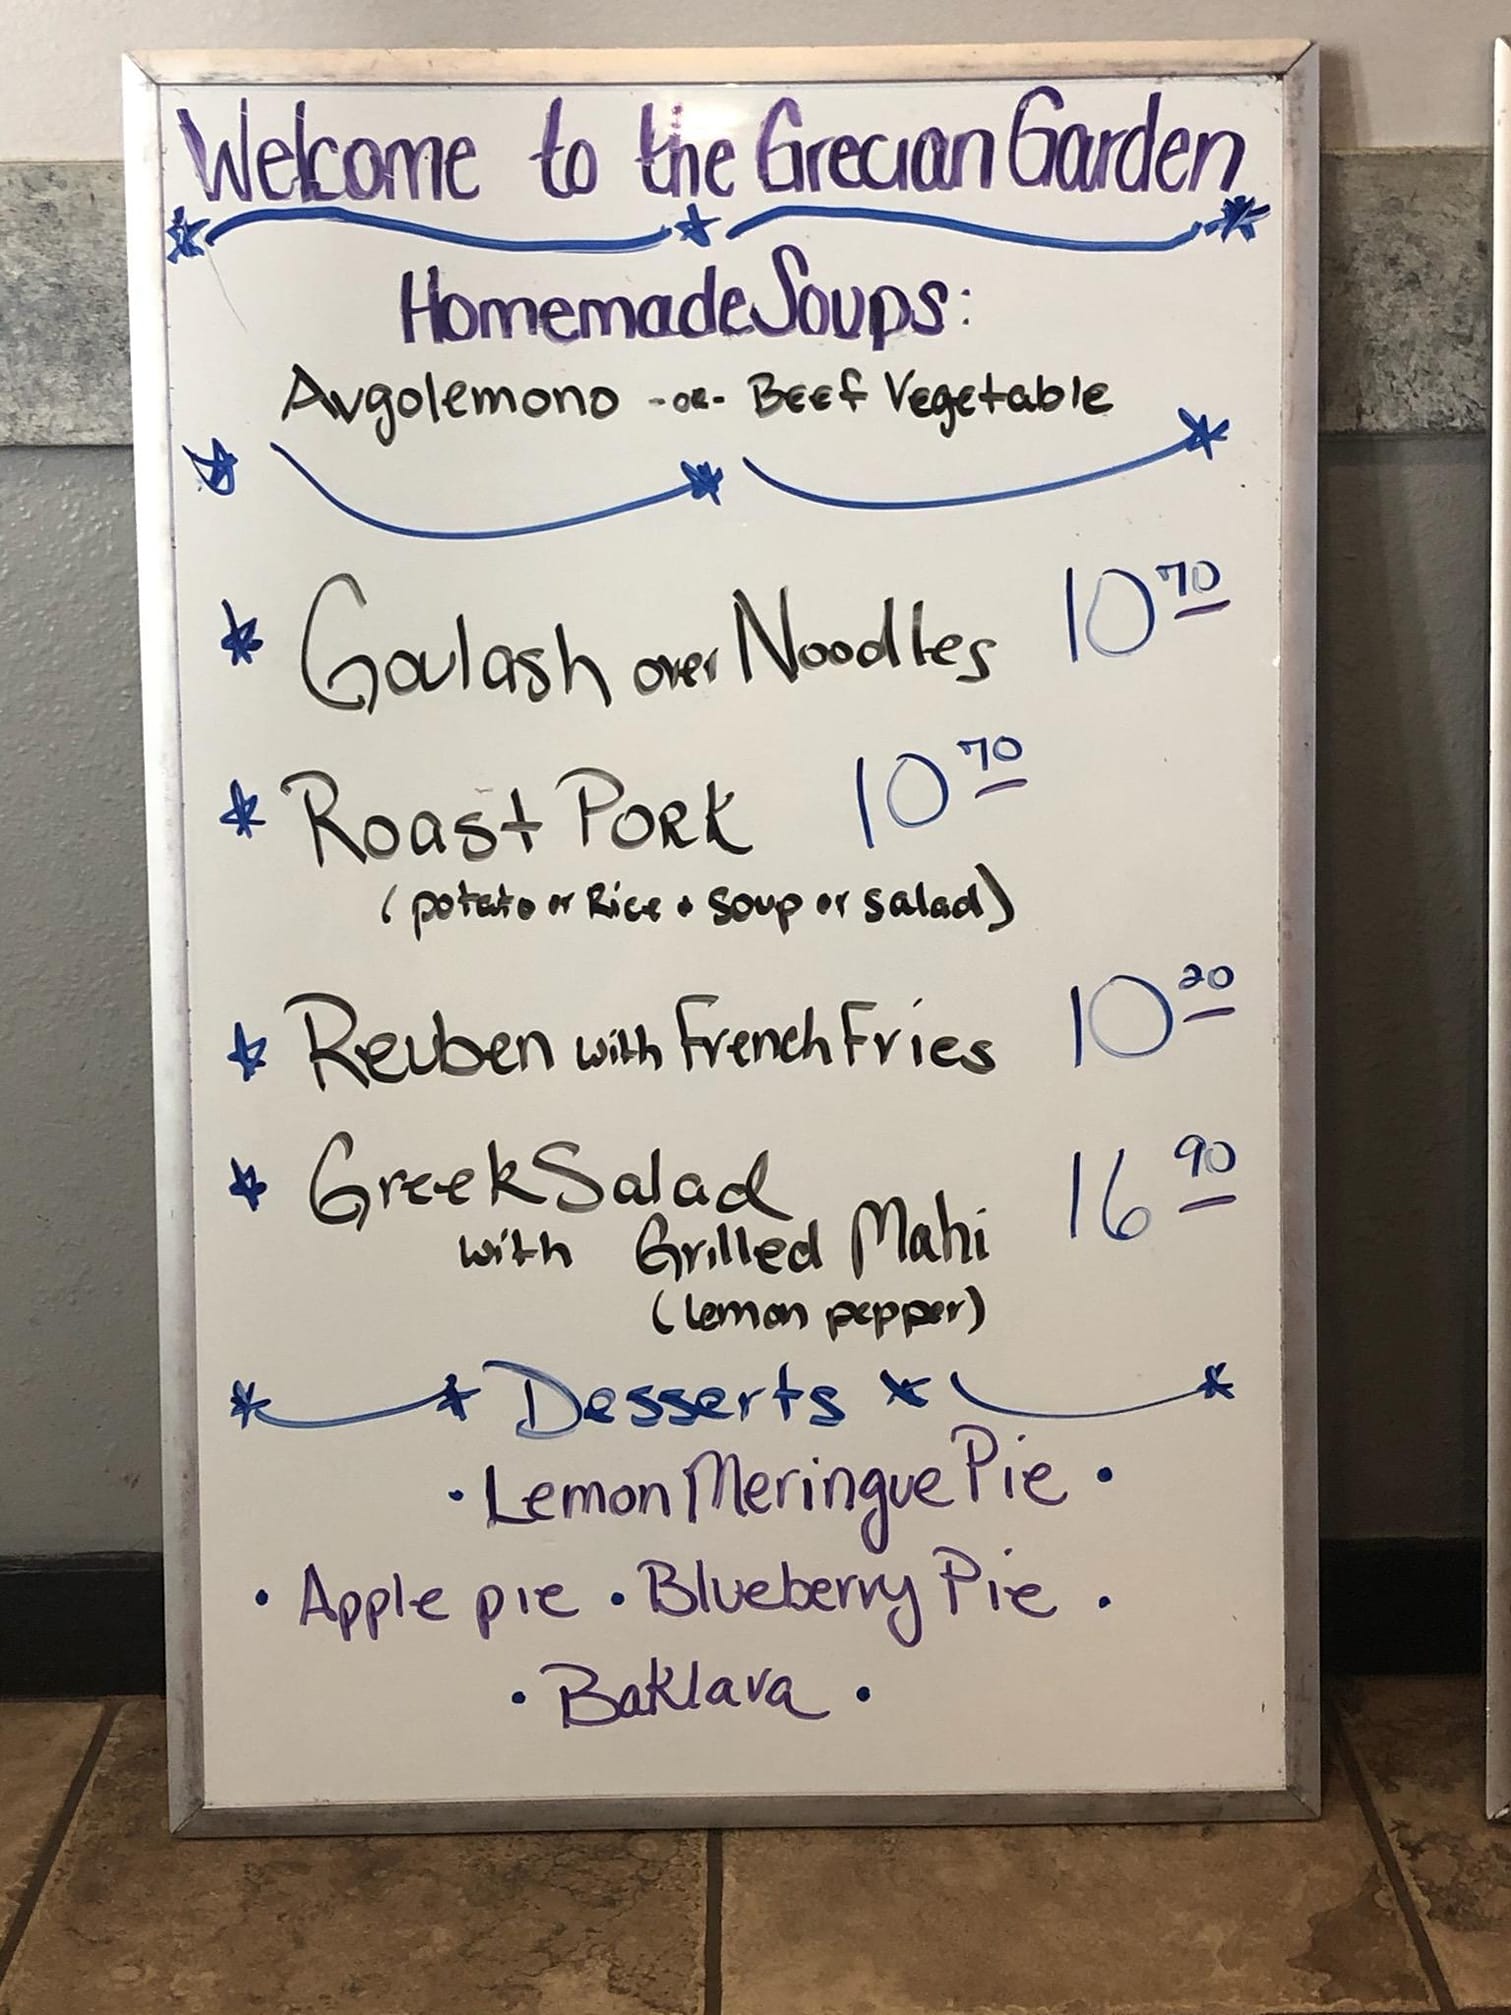 Welcome to the Grecian Garden
Homemade Soups:
Avgolemono -OR- Beef Vegetable
Goulash over Noodles 10 70
Roast Pork 10 70
(potato or Rice + Soup or Salad)
Reuben with French Fries 10 20
Greek Salad 16 90
with Grilled Mahi
(lemon pepper)
Desserts
· Lemon Meringue Pie ·
· Apple pie · Blueberry Pie ·
· Baklava ·